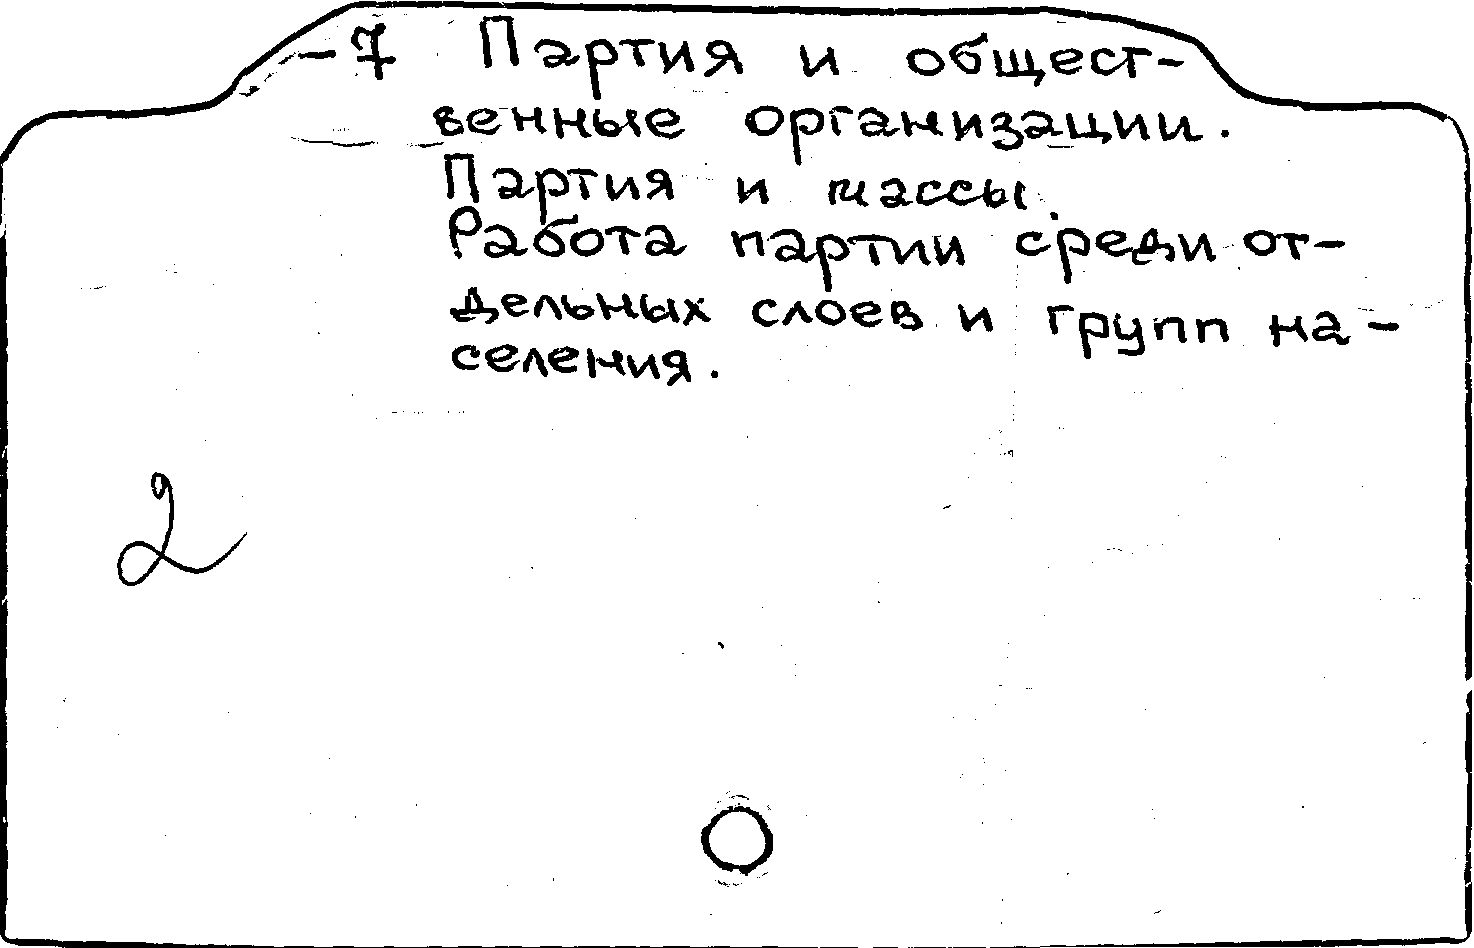 -7 Партия и общест-
венные организации.
Партия и массы.
Работа партии среди от-
дельных слоев и групп на-
селения.
2